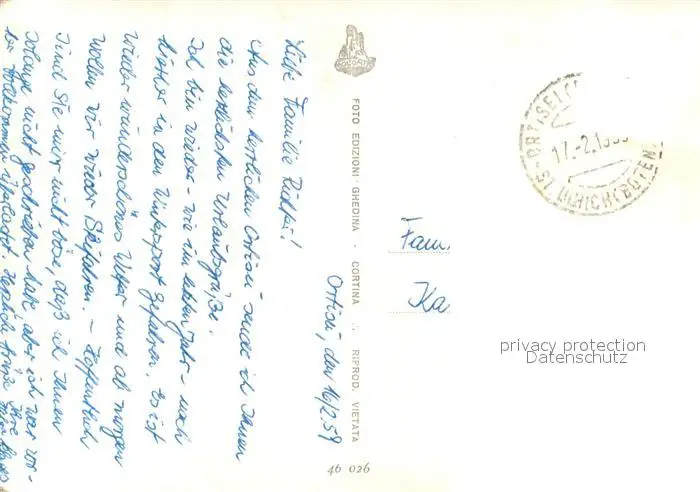 Ortisei, den 16/2.59
Liebe Familie Richter!
Aus dem herrlichen Ortisei sende ich Ihnen
die herzlichsten Urlaubsgrüße.
Ich bin wieder – wie im letzten Jahr – nach
hierher in den Wintersport gefahren. Es ist
wieder wunderschönes Wetter und ab morgen
wollen wir wieder Skifahren. – Hoffentlich
sind Sie mir nicht böse, daß ich Ihnen
solange nicht geschrieben habe, aber ich war vor-
her vollkommen überlastet. Herzliche Grüße Ihre
FOTO EDIZIONI GHEDINA · CORTINA · RIPROD. VIETATA
46 026
ORTISEI
17.-2.19
ST. ULRICH (BOZEN)
Fam.
Ka
privacy protection
Datenschutz